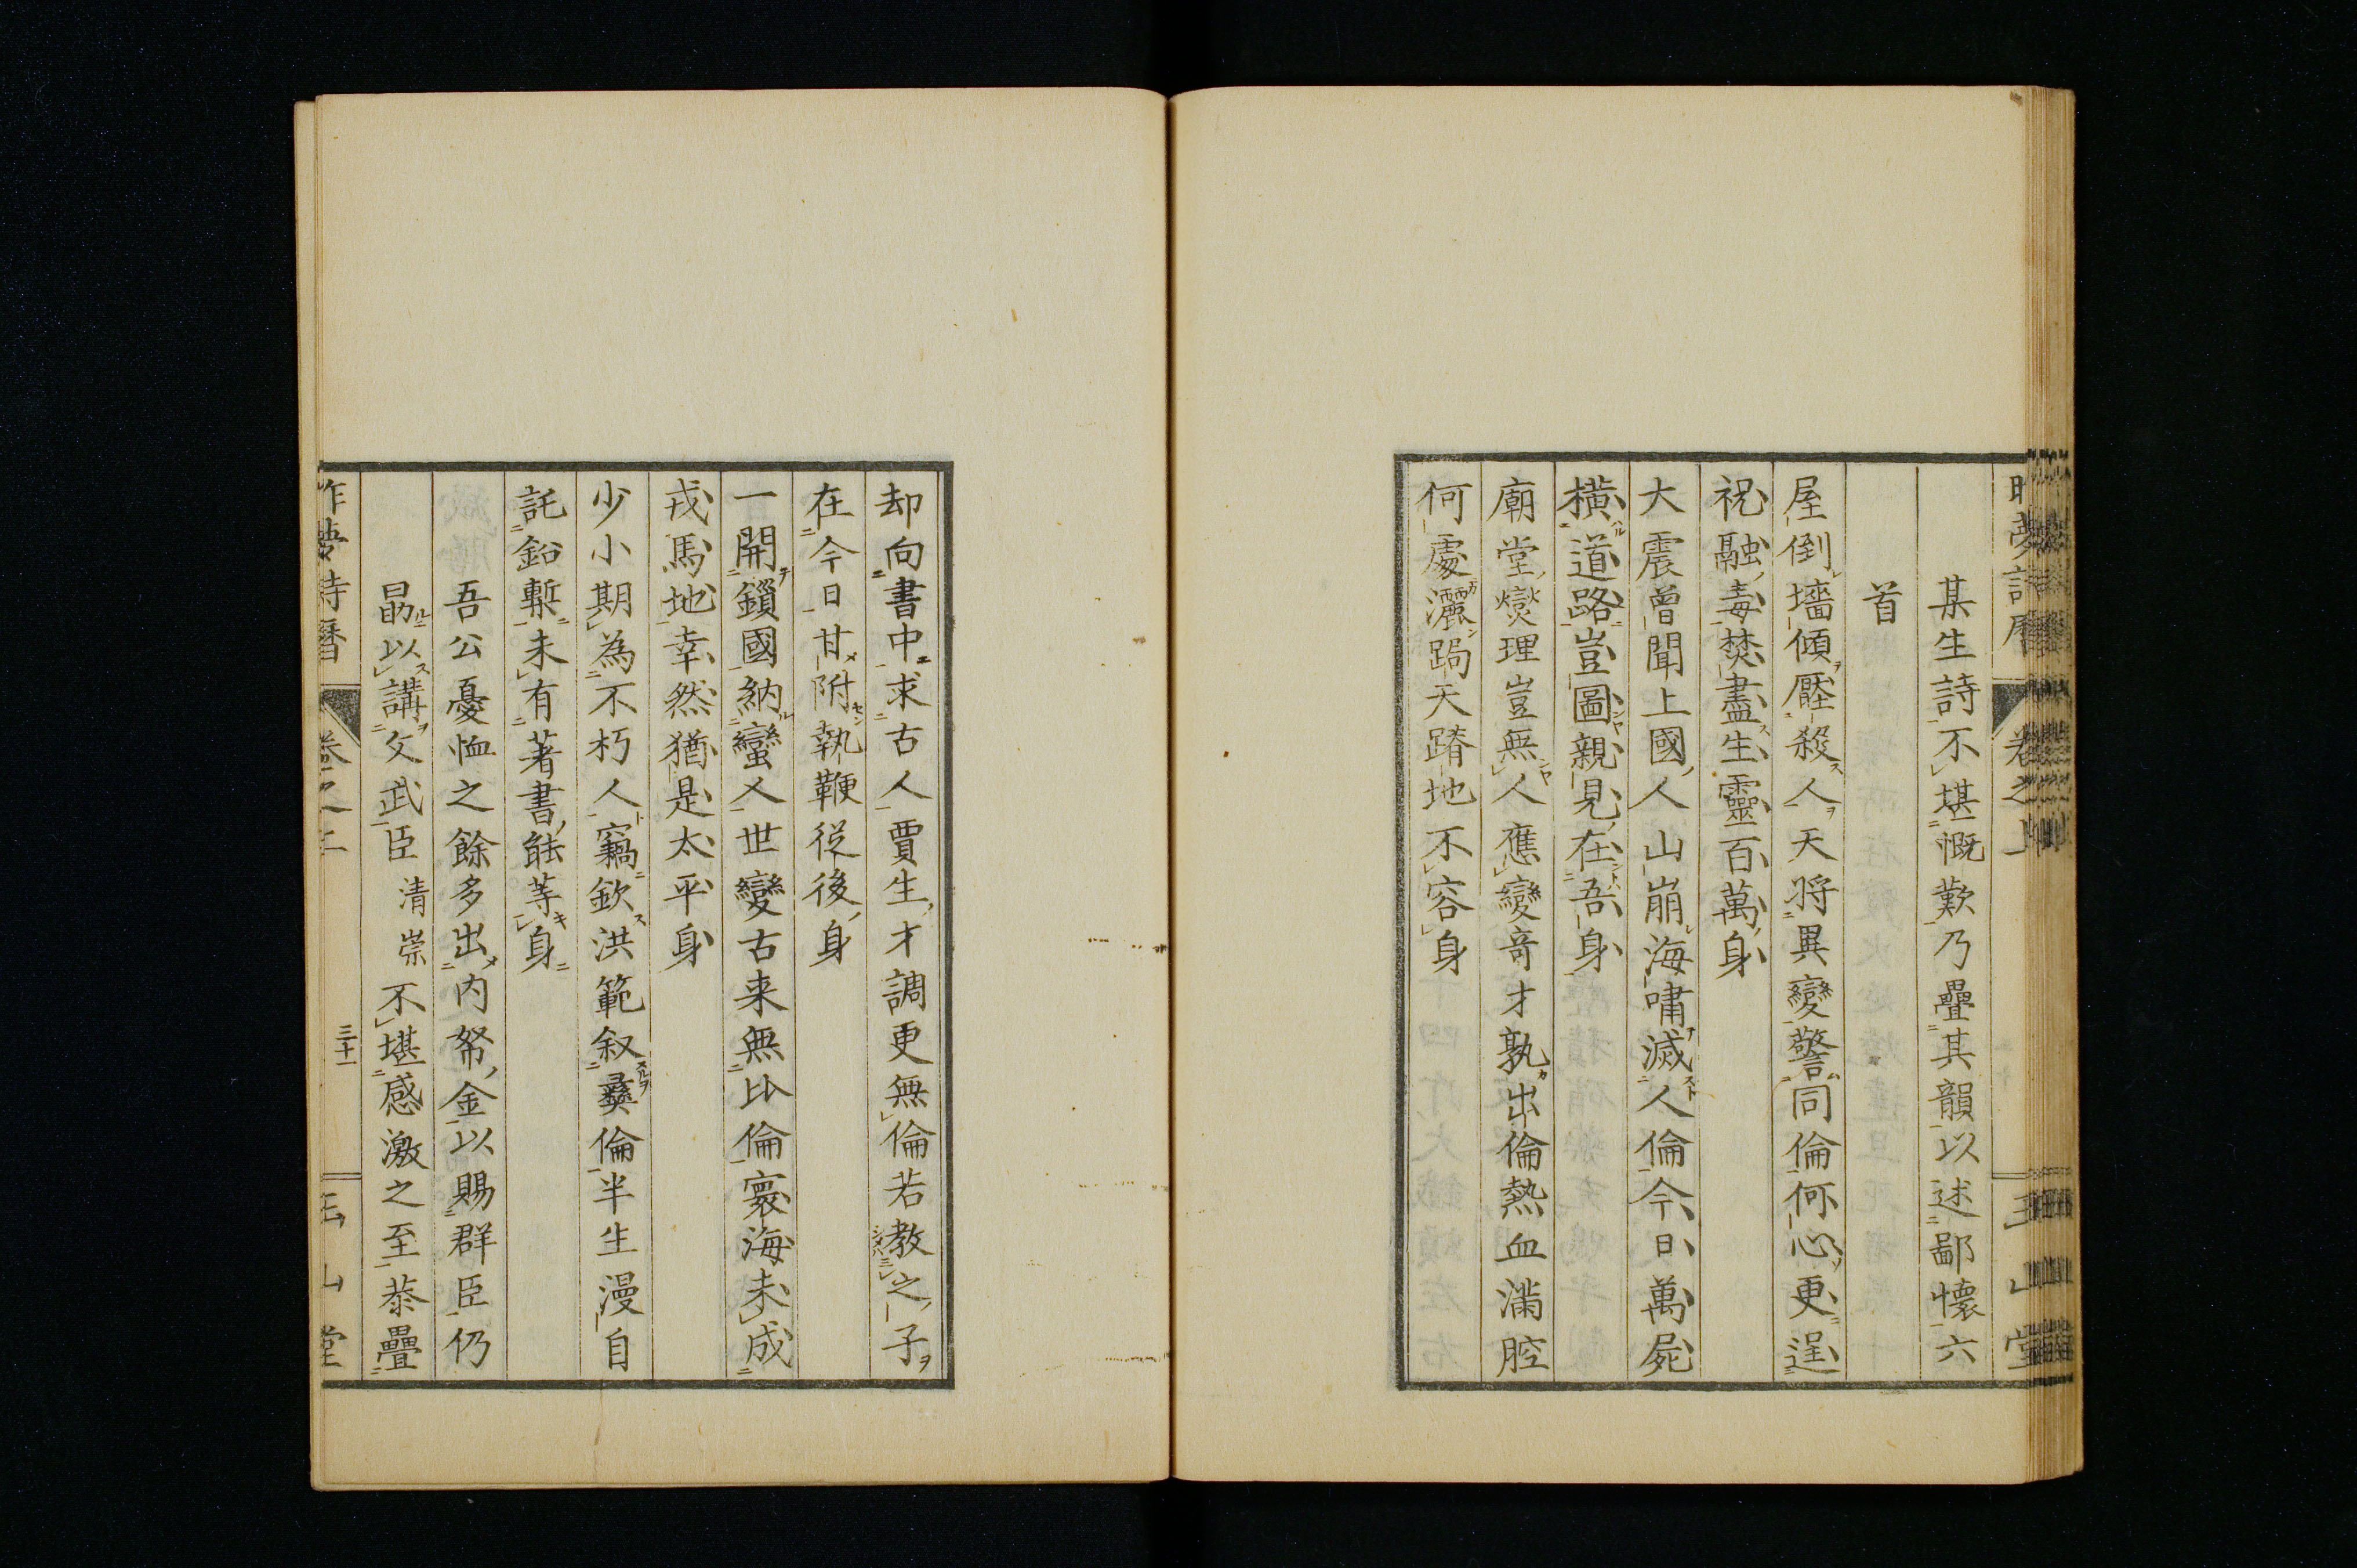 某生詩不堪慨歎乃疊其韻以述鄙懷六
首
屋倒墻傾壓殺人天将異變警同倫何心更逞
祝融毒焚盡生靈百萬身
大震曽聞上國人山崩海嘯滅人倫今日萬屍
横道路豈圖親見在吾身
廟堂爕理豈無人應變竒才孰出倫熱血滿腔
何處灑跼天蹐地不容身
却向書中求古人賈生才調更無倫若教之子
在今日甘附執鞭従後身
一開鎖國納蠻人世變古来無比倫寰海未成
戎馬地幸然猶是太平身
少小期為不朽人竊欽洪範叙彝倫半生漫自
託鉛槧未有著書能等身
吾公憂恤之餘多出内帑金以賜群臣仍
勗以講文武臣清崇不堪感激之至恭疊
昨夢詩暦
卷之上
三十一
玉山堂